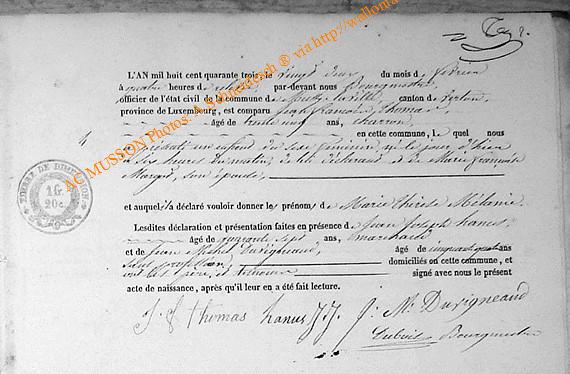 L'AN mil huit cent quarante trois, le vingt deux du mois de février
à quatre heures de relevée, par-devant nous Bourgmestre,
officier de l'état civil de la commune de Musty-la-Ville, canton de Virton,
province de Luxembourg, est comparu Jean François Thomas
âgé de trente neuf ans, charron,
4
en cette commune, le quel nous
a présenté un enfant du sexe féminin, né le jour d'hier
à six heures du matin, de lui déclarant et de Marie Françoise
son épouse,
et auquel a déclaré vouloir donner le prénoms de Marie Thérèse Mélanie
Lesdites déclaration et présentation faites en présence de Jean Joseph hanus,
âgé de quarante sept ans, marchand
et de Jean Michel Duvigneaud, âgé de cinquante ans
sans profession, domiciliés en cette commune, et
ont les père et témoins signé avec nous le présent
acte de naissance, après qu'il leur en a été fait lecture.
J. f thomas hanus J J. J. M. Duvigneaud
Dubois Bourgmestre
TIMBRE DE DIMENSION
1 G
20 c.
AC MUSSON Photos: A. ® via http://wallonia